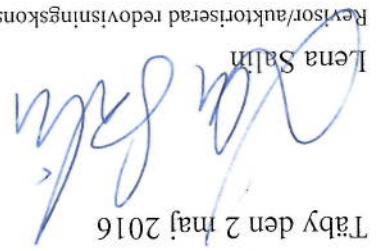 Täby den 2 maj 2016
Lena Salin
Revisor/auktoriserad redovisningskons